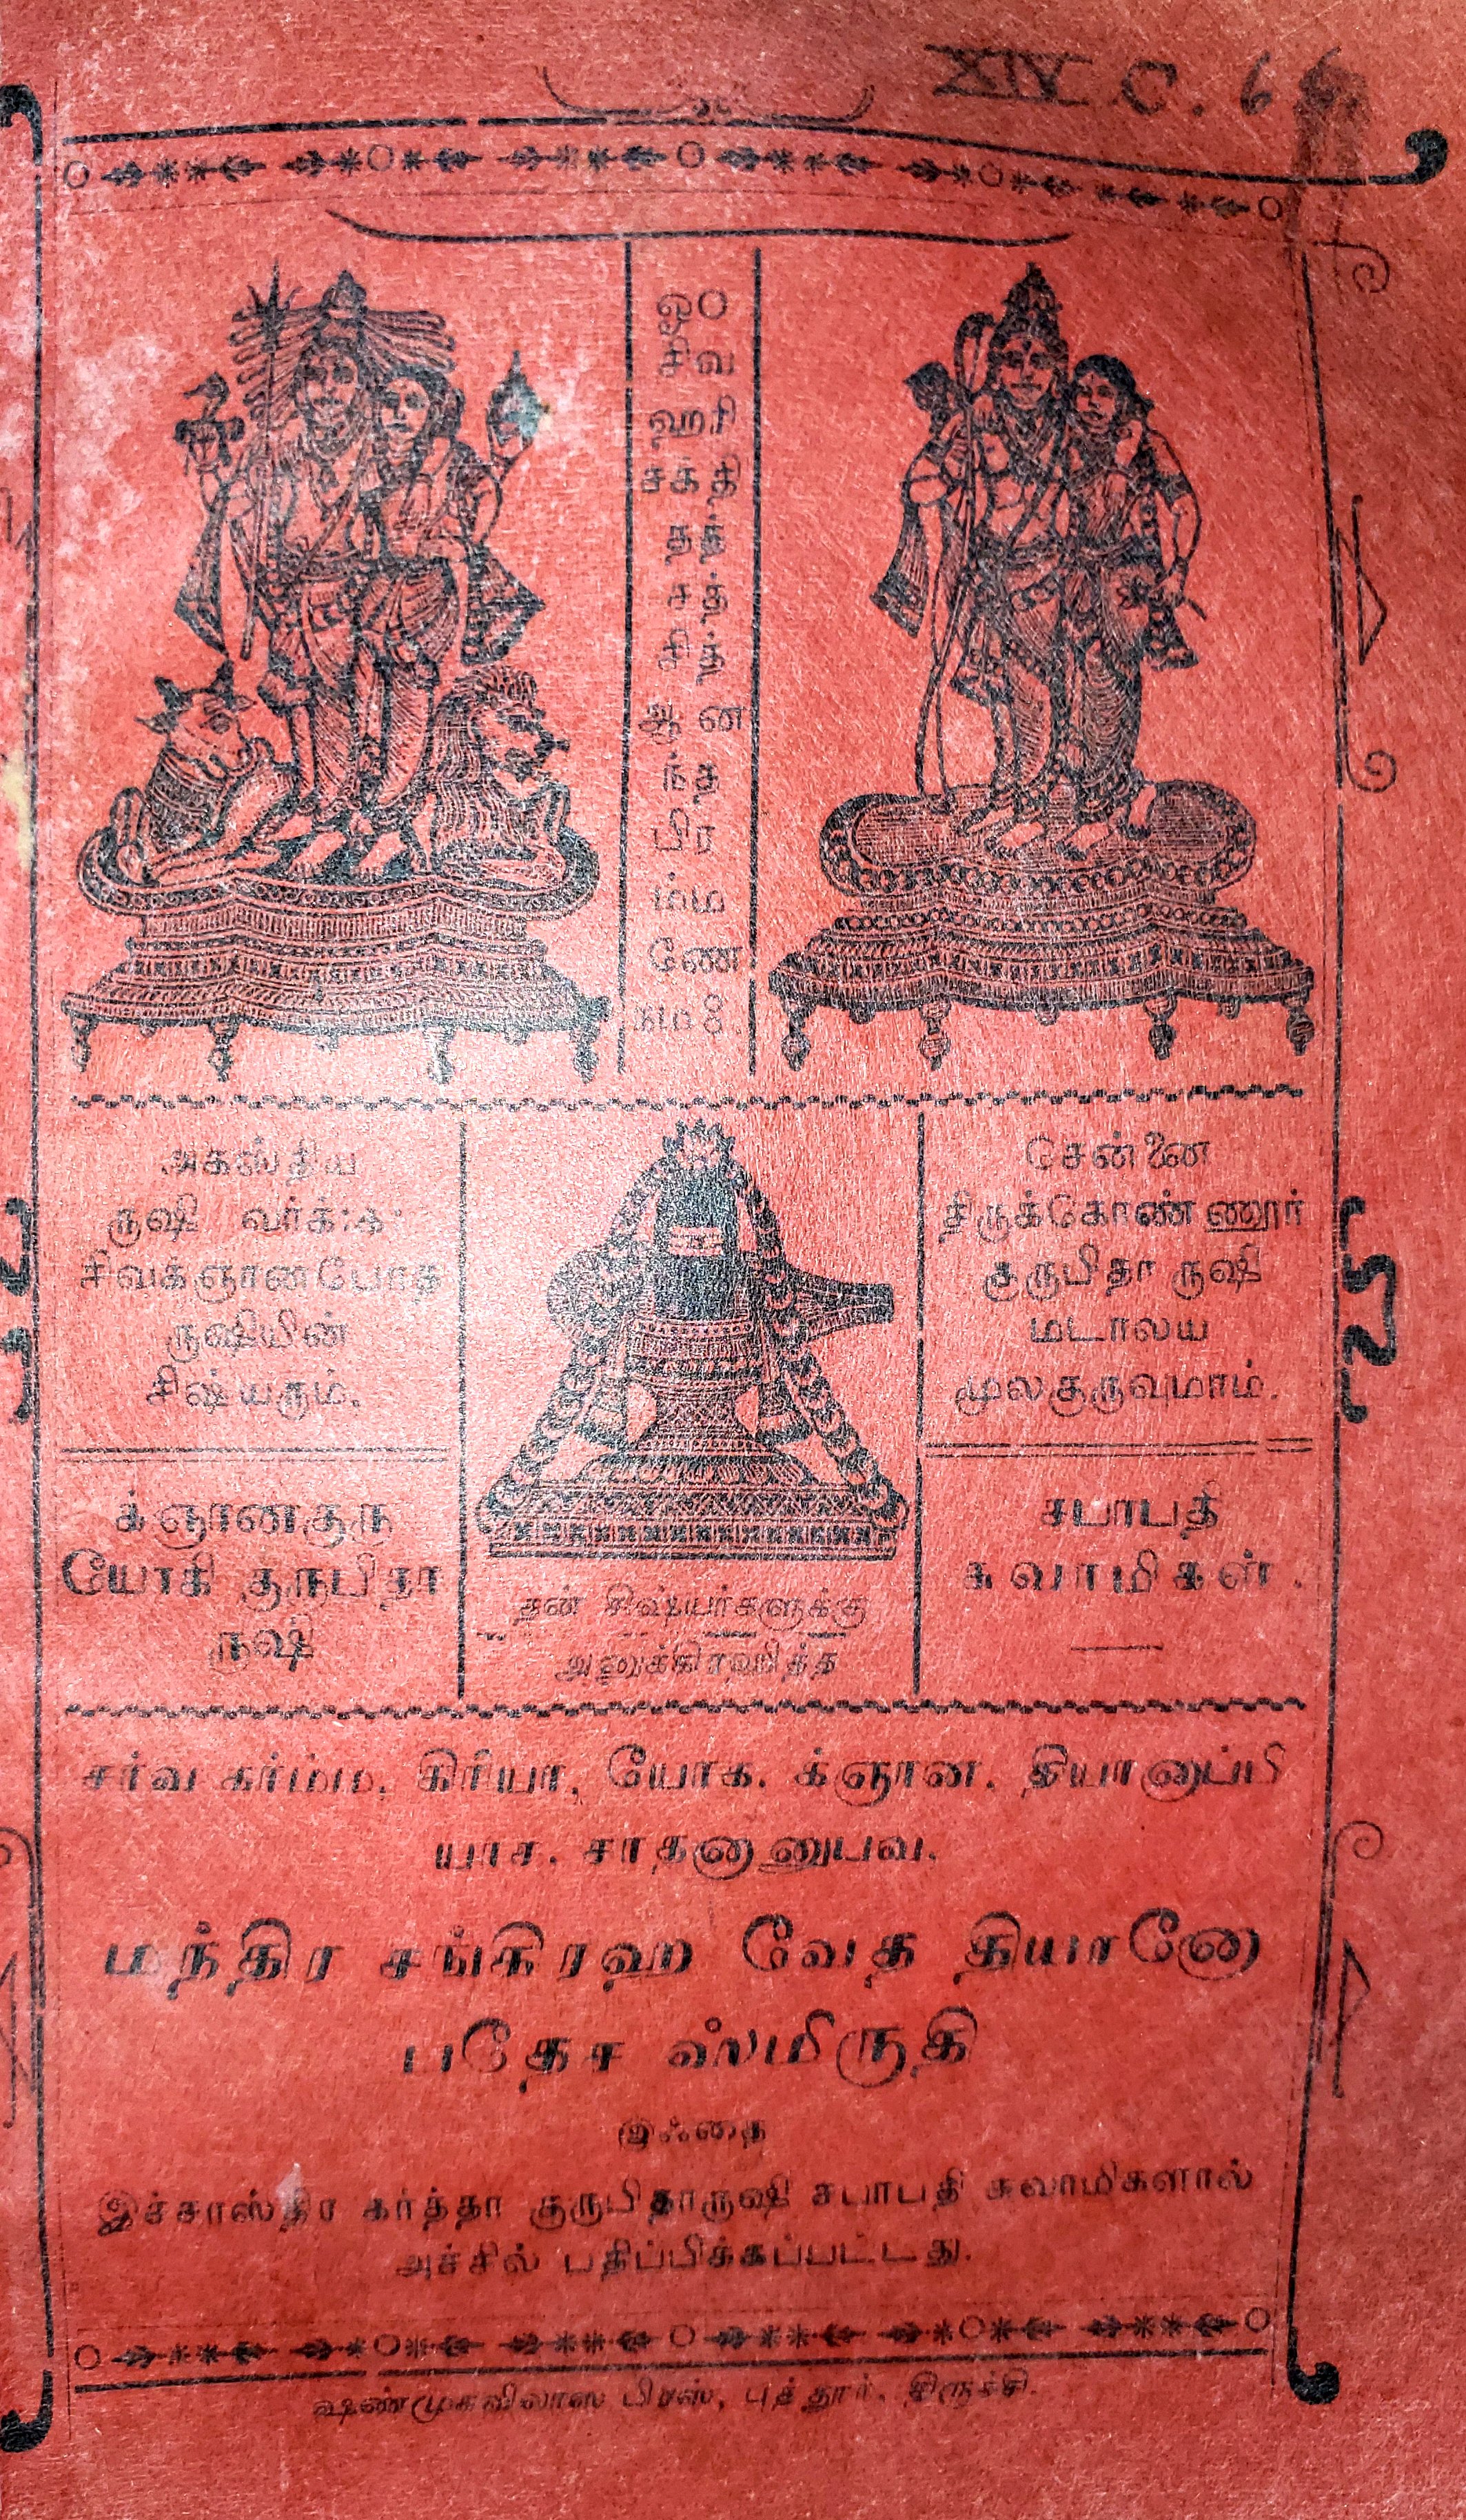 XIV. C. 66
ஓம்
சிவ
ஹரி
சக்தி
தத்
சத்
சித்
ஆன
ந்த
பிர
ம்ம
ணே
நம:
அகஸ்திய
ருஷி வர்க்க
சிவக்ஞானபோத
ருஷியின்
சிஷ்யரும்.
சென்னை
திருக்கொண்ணூர்
குருபிதா ருஷி
மடாலய
மூலகுருவுமாம்.
க்ஞானகுரு
யோகி குருபிதா
ருஷி
சபாபதி
சுவாமிகள்.
தன் சிஷ்யர்களுக்கு
அனுக்கிரஹித்த
சர்வ கர்ம்ம, கிரியா, யோக, க்ஞான, தியானப்பி
யாச, சாதனானுபவ,
மந்திர சங்கிரஹ வேத தியானோ
பதேச ஸ்மிருதி
இஃதை
இச்சாஸ்திர கர்த்தா குருபிதாருஷி சபாபதி சுவாமிகளால்
அச்சில் பதிப்பிக்கப்பட்டது.
ஷண்முகவிலாஸ பிரஸ், புத்தூர், திருச்சி.